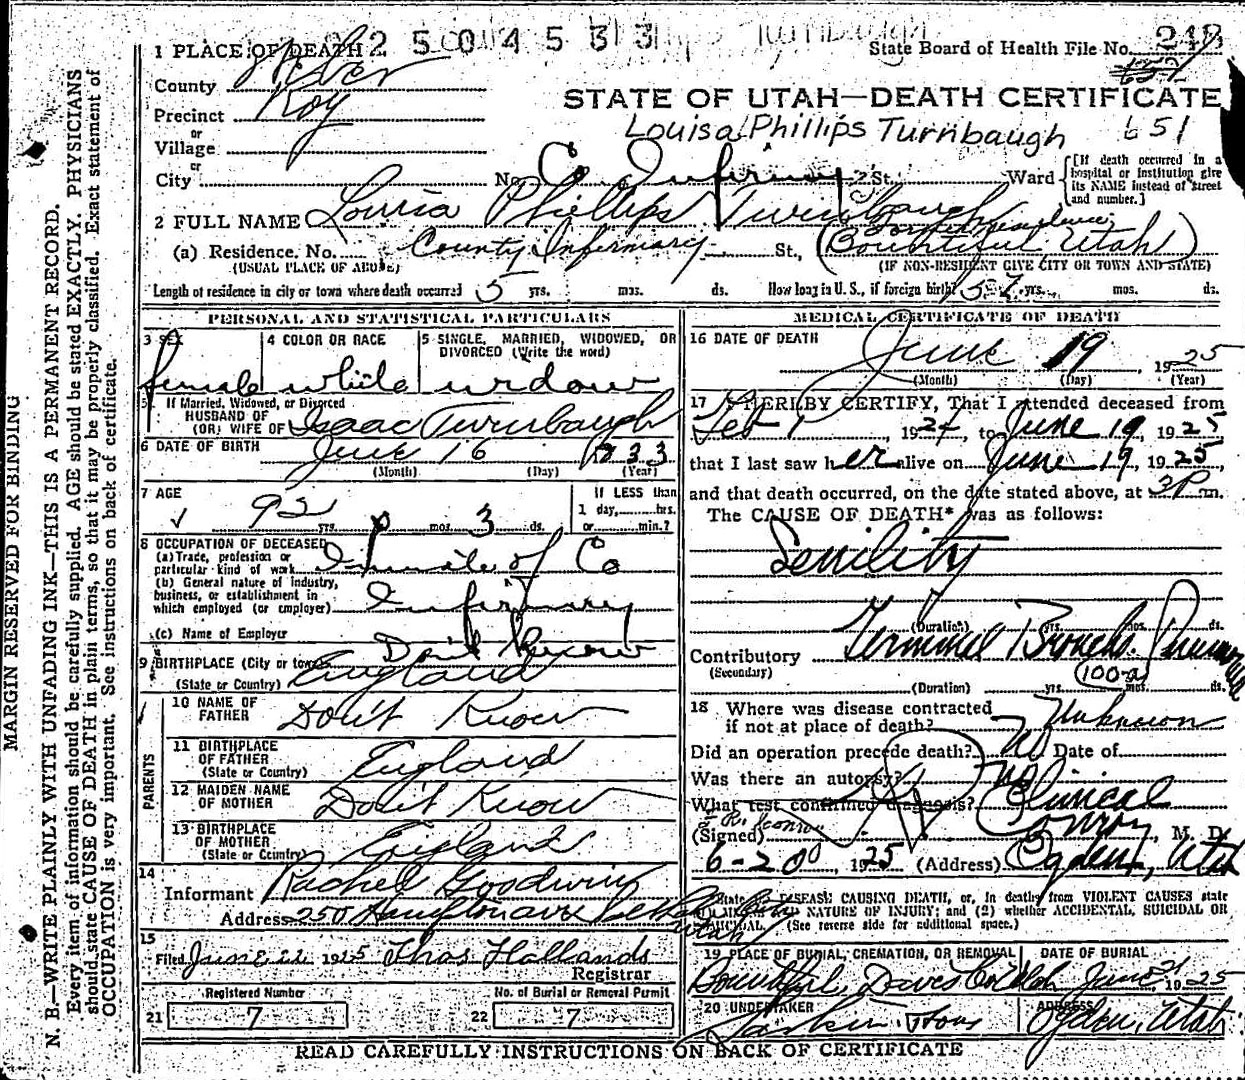 1 PLACE OF DEATH 2 5 0 4 5 3 3
State Board of Health File No. 248
County Weber
Precinct Roy
or
Village
or
City
STATE OF UTAH—DEATH CERTIFICATE
Louisa Phillips Turnbaugh 651
No. Co Infirmary St. Ward
[If death occurred in a hospital or institution give its NAME instead of street and number.]
2 FULL NAME Louisa Phillips Turnbaugh
(a) Residence. No. County Infirmary St., (Bountiful Utah)
(USUAL PLACE OF ABODE) (IF NON-RESIDENT GIVE CITY OR TOWN AND STATE)
Length of residence in city or town where death occurred 5 yrs. mos. ds. How long in U.S., if foreign birth? 57 yrs. mos. ds.
PERSONAL AND STATISTICAL PARTICULARS
3 SEX
female
4 COLOR OR RACE
white
5 SINGLE, MARRIED, WIDOWED, OR DIVORCED (Write the word)
widow
If Married, Widowed, or Divorced
HUSBAND OF
(OR) WIFE OF Isaac Turnbaugh
6 DATE OF BIRTH June 16 1833
(Month) (Day) (Year)
7 AGE
92 yrs. 0 mos. 3 ds.
If LESS than
1 day, hrs.
or min.?
8 OCCUPATION OF DECEASED
(a) Trade, profession or
particular kind of work Inmate of Co
(b) General nature of industry,
business, or establishment in
which employed (or employer) Infirmary
(c) Name of Employer Don't Know
9 BIRTHPLACE (City or town)
(State or Country) England
PARENTS
10 NAME OF FATHER Don't Know
11 BIRTHPLACE OF FATHER
(State or Country) England
12 MAIDEN NAME OF MOTHER Don't Know
13 BIRTHPLACE OF MOTHER
(State or Country) England
14
Informant Rachel Goodwin
Address 250
Utah
15
Filed June 22 1925 Thos Hollands
Registrar
Registered Number
21 7
No. of Burial or Removal Permit
22 7
MEDICAL CERTIFICATE OF DEATH
16 DATE OF DEATH
June 19 1925
(Month) (Day) (Year)
17 I HEREBY CERTIFY, That I attended deceased from
Feb 1 1924, to June 19, 1925
that I last saw her alive on June 19, 1925,
and that death occurred, on the date stated above, at 3P m.
The CAUSE OF DEATH* was as follows:
Senility
(Duration) yrs. mos. ds.
Contributory Terminal Broncho Pneumonia
(Secondary) 100-a
(Duration) yrs. mos. ds.
18 Where was disease contracted
if not at place of death? Unknown
Did an operation precede death? No Date of
Was there an autopsy? no
What test confirmed diagnosis? Clinical
(Signed) Conroy, M. D.
6-20 1925 (Address) Ogden, Utah
State the DISEASE CAUSING DEATH, or, in deaths from VIOLENT CAUSES state
(1) MEANS AND NATURE OF INJURY; and (2) whether ACCIDENTAL, SUICIDAL OR
HOMICIDAL. (See reverse side for additional space.)
19 PLACE OF BURIAL, CREMATION, OR REMOVAL
Bountiful, Davis Co Utah
DATE OF BURIAL
June 21 1925
20 UNDERTAKER
Larkin & Sons
ADDRESS
Ogden, Utah
READ CAREFULLY INSTRUCTIONS ON BACK OF CERTIFICATE
MARGIN RESERVED FOR BINDING
N. B.—WRITE PLAINLY WITH UNFADING INK—THIS IS A PERMANENT RECORD.
Every item of information should be carefully supplied. AGE should be stated EXACTLY. PHYSICIANS
should state CAUSE OF DEATH in plain terms, so that it may be properly classified. Exact statement of
OCCUPATION is very important. See instructions on back of certificate.